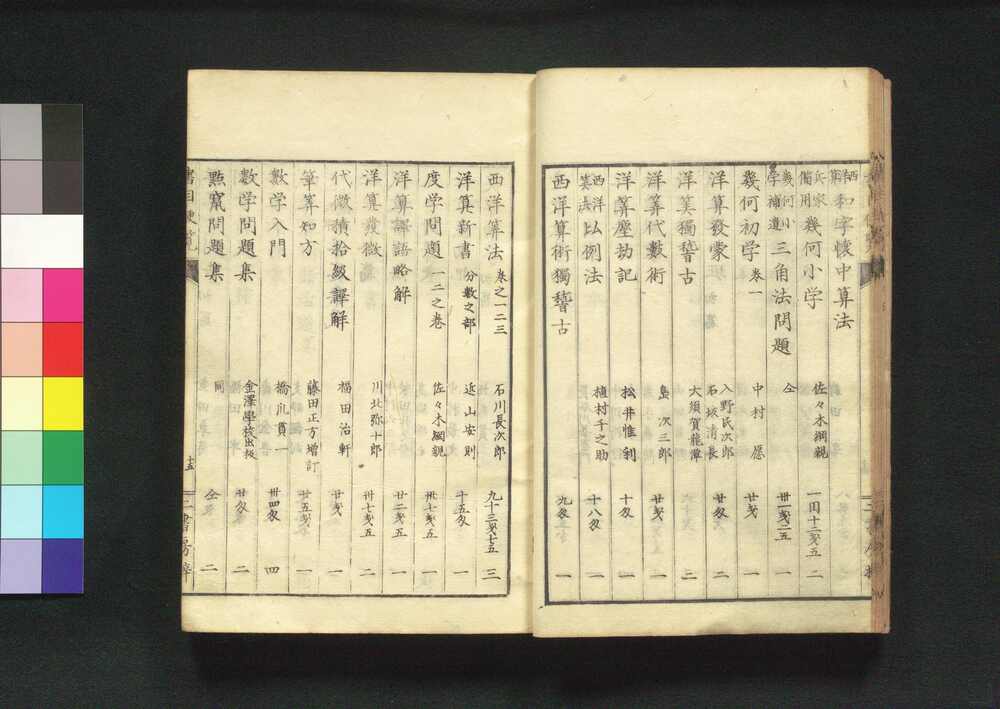 西洋算 和字懐中算法
兵家備用 幾何小学 佐々木綱親 一円十二匁五 二
幾何小学補遺 三角法問題 仝 卅一匁二五 一
幾何初学 巻一 中村愿 廿匁 一
洋算發蒙 入野民次郎 石坂清長 廿匁 二
洋算獨稽古 大須賀龍潭 二
洋算代數術 島次三郎 廿匁 一
洋算塵劫記 松井惟利 十匁 一
西洋算法 比例法 植村千之助 十八匁 一
西洋算術獨稽古 九匁 一
西洋算法 巻之一二三 石川長次郎 九十三匁七五 三
洋算新書 分數之部 近山安則 十五匁 一
度学問題 一二之巻 佐々木綱親 卅七匁五 一
洋算譯語略解 廿二匁五 一
洋算發微 川北弥十郎 卅七匁五 二
代微積拾級譯解 福田治軒 廿匁 一
筆算知方 藤田正方増訂 廿五匁 一
數学入門 橋爪貫一 卅四匁 四
數学問題集 金澤學校出板 廿匁 二
點竄問題集 同 仝 二
書目便覧 十五 三書房梓